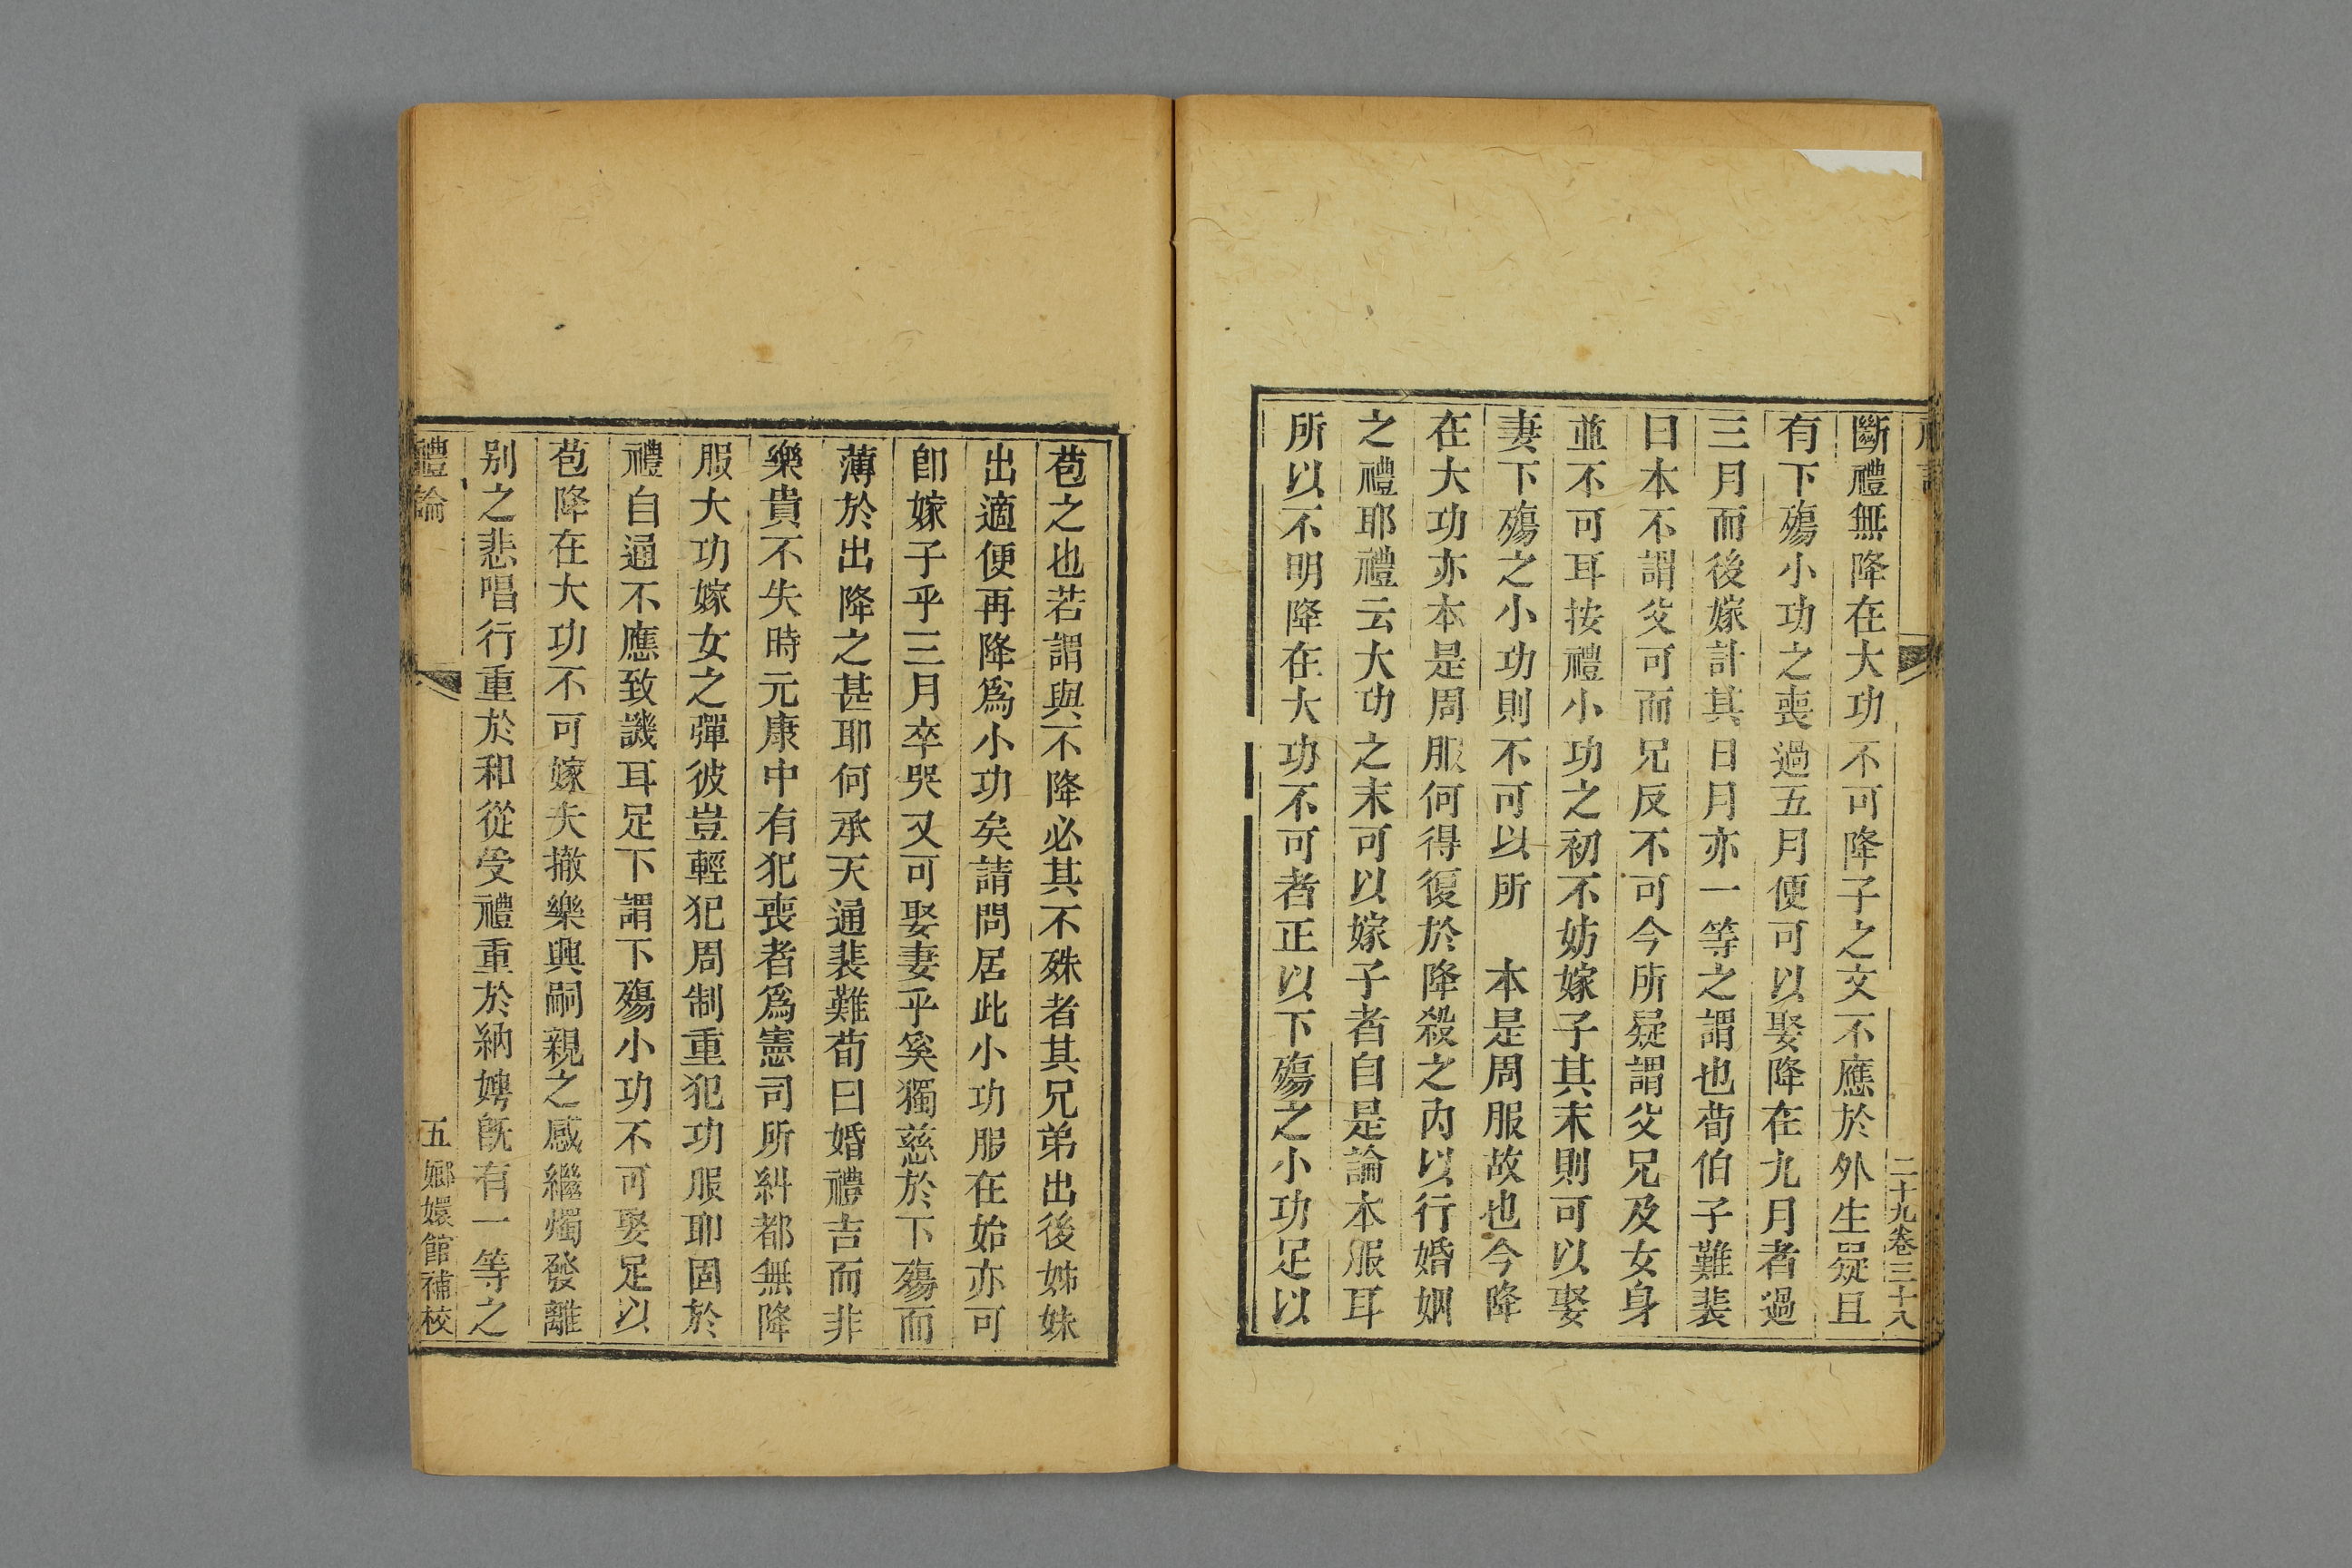 二十九卷三十八
斷禮無降在大功不可降子之文不應於外生疑且
有下殤小功之喪過五月便可以娶降在九月者過
三月而後嫁計其日月亦一等之謂也荀伯子難裴
曰本不謂父可而兄反不可今所疑謂父兄及女身
並不可耳按禮小功之初不妨嫁子其末則可以娶
妻下殤之小功則不可以所　本是周服故也今降
在大功亦本是周服何得復於降殺之內以行婚姻
之禮耶禮云大功之末可以嫁子者自是論本服耳
所以不明降在大功不可者正以下殤之小功足以
苞之也若謂與不降必其不殊者其兄弟出後姊妹
出適便再降爲小功矣請問居此小功服在始亦可
卽嫁子乎三月卒哭又可娶妻乎奚獨慈於下殤而
薄於出降之甚耶何承天通裴難荀曰婚禮吉而非
樂貴不失時元康中有犯喪者爲憲司所糾都無降
服大功嫁女之彈彼豈輕犯周制重犯功服耶固於
禮自通不應致譏耳足下謂下殤小功不可娶足以
苞降在大功不可嫁夫撤樂興嗣親之感繼燭發離
别之悲唱行重於和從受禮重於納娉旣有一等之
禮論
五
嫏嬛館補校